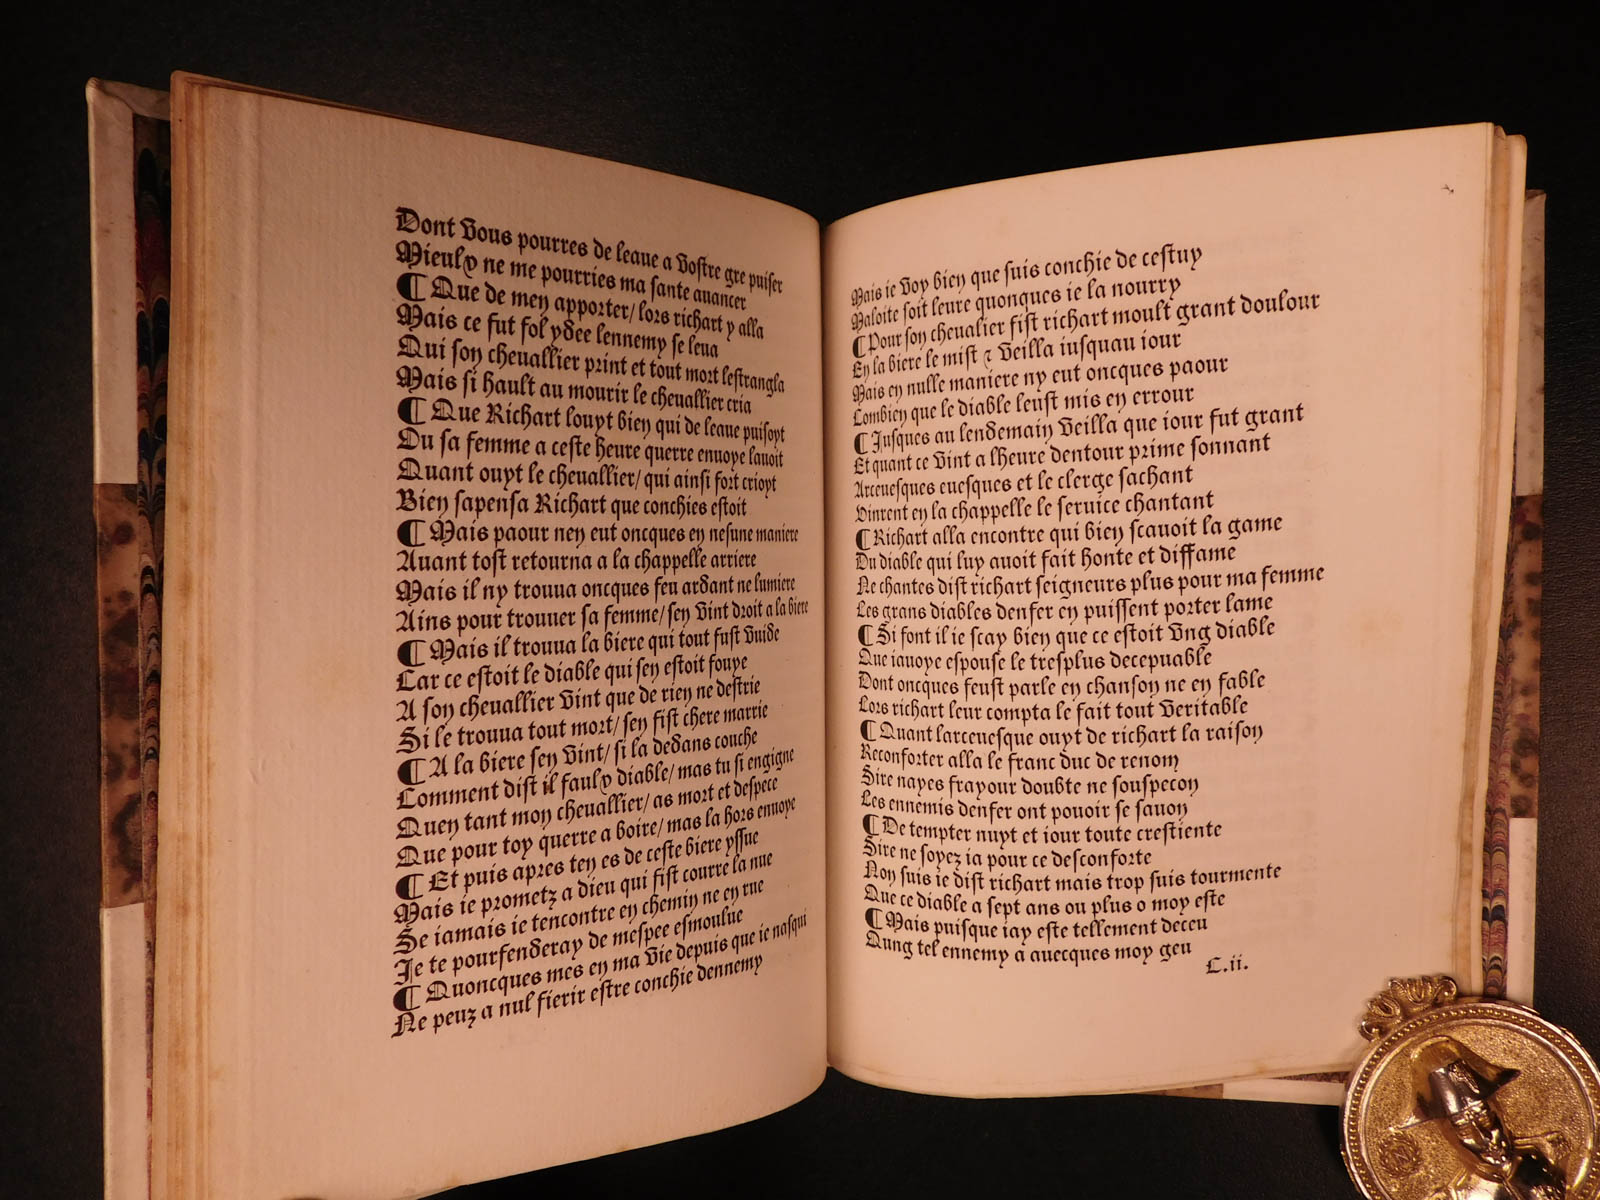 Dont vous pourres de leaue a vostre gre puiser
Mieulx ne me pourries ma sante auancer
¶ Que de men apporter/ lors richart y alla
Mais ce fut fol ydee lennemy se leua
Qui son cheuallier print et tout mort lestrangla
Mais si hault au mourir le cheuallier cria
¶ Que Richart louyt bien qui de leaue puisoyt
Ou sa femme a ceste heure querre enuoye lauoit
Quant ouyt le cheuallier/ qui ainsi fort crioyt
Bien sapensa Richart que conchies estoit
¶ Mais paour nen eut oncques en nesune maniere
Auant tost retourna a la chappelle arriere
Mais il ny trouua oncques feu ardant ne lumiere
Ains pour trouuer sa femme/ sen vint droit a la biere
¶ Mais il trouua la biere qui tout fust vuide
Car ce estoit le diable qui sen estoit fouye
A son cheuallier vint que de rien ne destrie
Si le trouua tout mort/ sen fist chere marrie
¶ A la biere sen vint/ si la dedans couche
Comment dist il faulx diable/ mas tu si engigne
Quen tant mon cheuallier/ as mort et despece
Que pour toy querre a boire/ mas la hors enuoye
¶ Et puis apres ten es de ceste biere yssue
Mais ie prometz a dieu qui fist courre la nue
Se iamais ie tencontre en chemin ne en rue
Je te pourfenderay de mespee esmoulue
¶ Quoncques mes en ma vie depuis que ie nasqui
Ne peuz a nul fierir estre conchie dennemy
Mais ie voy bien que suis conchie de cestuy
Maloite soit leure quonques ie la nourry
¶ Pour son cheualier fist richart moult grant doulour
En la biere le mist ⁊ veilla iusquau iour
Mais en nulle maniere ny eut oncques paour
Combien que le diable leust mis en errour
¶ Jusques au lendemain veilla que iour fut grant
Et quant ce vint a lheure dentour prime sonnant
Arceuesques euesques et le clerge sachant
Vinrent en la chappelle le seruice chantant
¶ Richart alla encontre qui bien scauoit la game
Du diable qui luy auoit fait honte et diffame
Ne chantes dist richart seigneurs plus pour ma femme
Les grans diables denfer en puissent porter lame
¶ Si font il ie scay bien que ce estoit vng diable
Que iauoye espouse le tresplus decepuable
Dont oncques feust parle en chanson ne en fable
Lors richart leur compta le fait tout veritable
¶ Quant larceuesque ouyt de richart la raison
Reconforter alla le franc duc de renom
Sire nayes frayour doubte ne souspecon
Les ennemis denfer ont pouoir se sauon
¶ De tempter nuyt et iour toute crestiente
Sire ne soyez ia pour ce desconforte
Non suis ie dist richart mais trop suis tourmente
Que ce diable a sept ans ou plus o moy este
¶ Mais puisque iay este tellement deceu
Qung tel ennemy a auecques moy geu
C.ii.